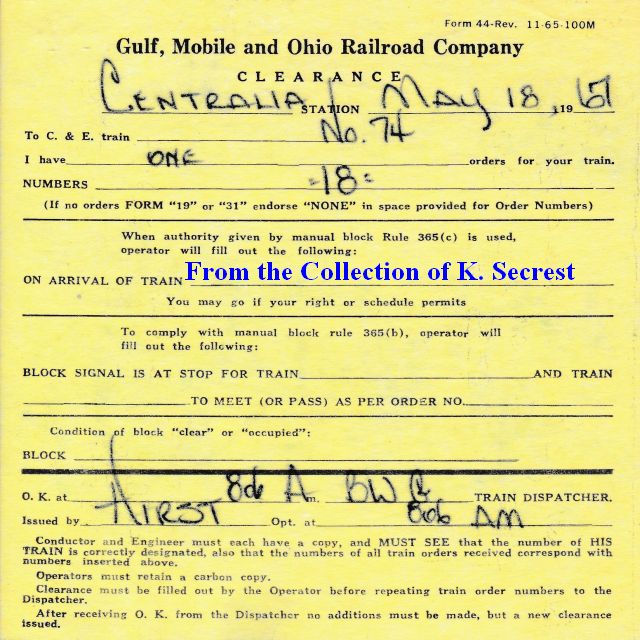 Form 44-Rev. 11-65-100M
Gulf, Mobile and Ohio Railroad Company
CLEARANCE
CENTRALIA STATION MAY 18, 1967
To C. & E. train No. 74
I have ONE orders for your train.
NUMBERS -18-
(If no orders FORM "19" or "31" endorse "NONE" in space provided for Order Numbers)
When authority given by manual block Rule 365(c) is used,
operator will fill out the following:
ON ARRIVAL OF TRAIN From the Collection of K. Secrest
You may go if your right or schedule permits
To comply with manual block rule 365(b), operator will
fill out the following:
BLOCK SIGNAL IS AT STOP FOR TRAIN AND TRAIN
TO MEET (OR PASS) AS PER ORDER NO.
Condition of block "clear" or "occupied":
BLOCK
O. K. at 806 A m. BWG TRAIN DISPATCHER.
Issued by HIRST Opt. at 806 AM
Conductor and Engineer must each have a copy, and MUST SEE that the number of HIS
TRAIN is correctly designated, also that the numbers of all train orders received correspond with
numbers inserted above.
Operators must retain a carbon copy.
Clearance must be filled out by the Operator before repeating train order numbers to the
Dispatcher.
After receiving O. K. from the Dispatcher no additions must be made, but a new clearance
issued.